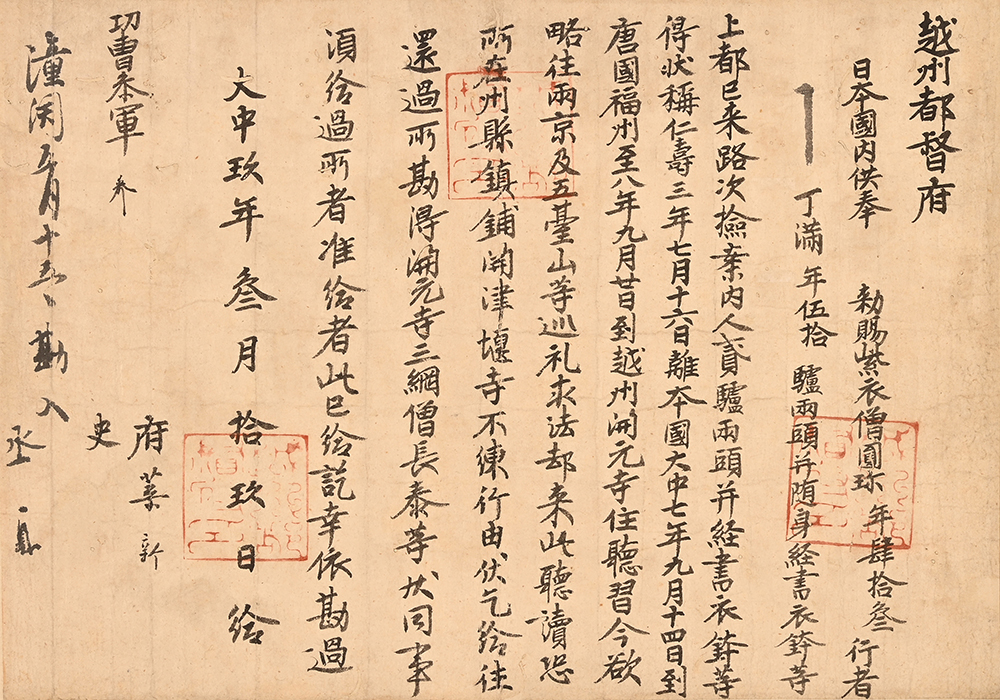 越州都督府
日夲國内供奉 勅賜紫衣僧圓珎 年肆拾叁 行者
丁滿 年伍拾 驢兩頭并随身経書衣鉢等
上都已来路次撿案内人貳驢兩頭并経書衣鉢等
得狀稱仁壽三年七月十六日離夲國大中七年九月十四日到
唐國福州至八年九月廿日到越州開元寺住聽習今欲
略往兩京及五臺山等巡礼求法却来此聽讀恐
所在州縣鎮鋪関津堰寺不練行由伏乞給往
還過所勘得開元寺三綱僧長泰等狀同事
湏給過所者准給者此已給訖幸依勘過
大中玖年叁月拾玖日給
府葉新
功曹叅軍
史
潼関五月十五日勘入
丞